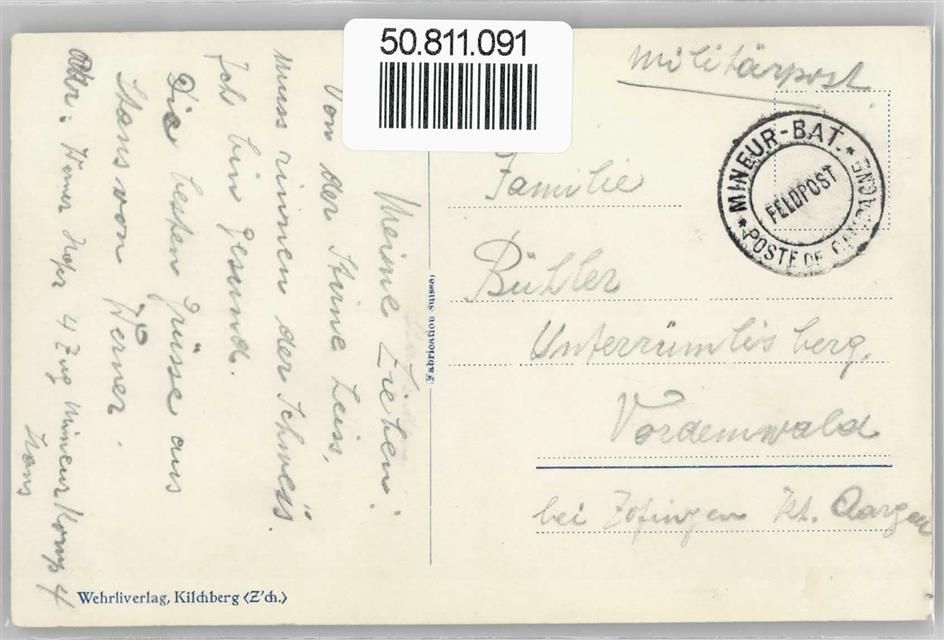 50.811.091
Militärpost
MINEUR-BAT.
FELDPOST
POSTE DE CAMPAGNE
Familie
Bühler
Unterrümlisberg,
Vordemwald
bei Zofingen Kt. Aargau
Meine Lieben!
Von der Stirne heiss,
muss rinnen der Schweiss.
Ich bin gesund.
Die besten Grüsse aus
Stans von
Werner.
Adr: Werner 4 Zug Mineur Komp 4
Stans
Fabrication Suisse,
Wehrliverlag, Kilchberg (Z'ch.)